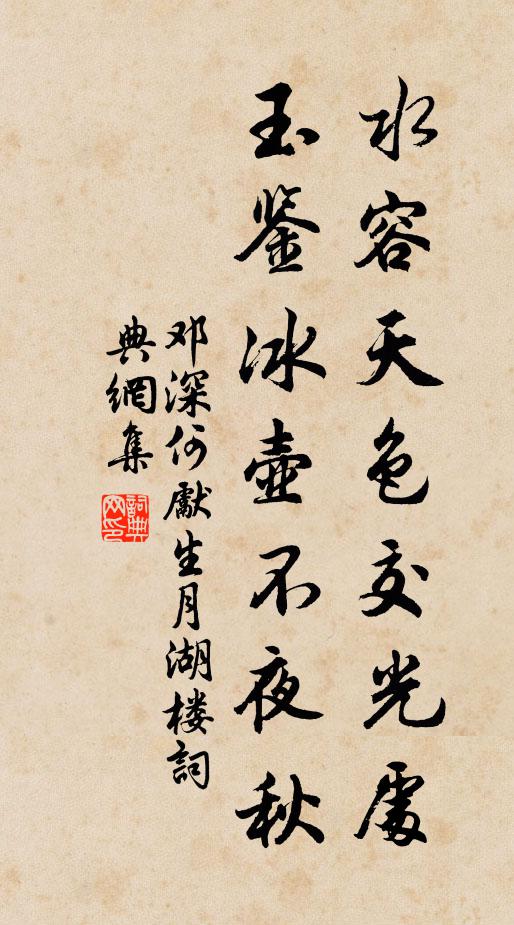 水容天色交光處
玉鉴冰壺不夜秋
邓深何獻生月湖楼詞
典網集
詞典
网印